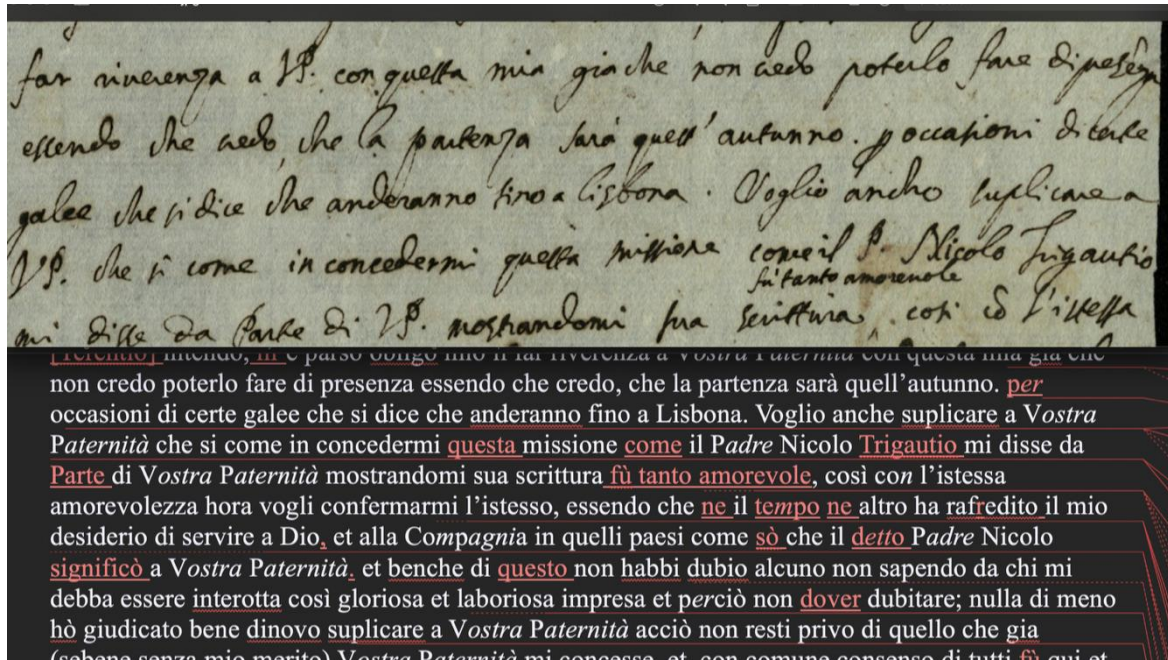 far riverenza a VP. con questa mia gia che non credo poterlo fare di
essendo che credo, che la partenza sarà quell' autunno. p occasioni di certe
galee che si dice che anderanno fino a Lisbona. Voglio ancho suplicare a
VP. che si come in concedermi questa missione come il P. Nicolo Trigautio
fù tanto amorevole
mi disse da Parte di VP. mostrandomi sua scrittura, così cō l'istessa
[Terentio] intendo, m'è parso obligo mio il far riverenza a Vostra Paternità con questa mia già che
non credo poterlo fare di presenza essendo che credo, che la partenza sarà quell’autunno. per
occasioni di certe galee che si dice che anderanno fino a Lisbona. Voglio anche suplicare a Vostra
Paternità che si come in concedermi questa missione come il Padre Nicolo Trigautio mi disse da
Parte di Vostra Paternità mostrandomi sua scrittura fù tanto amorevole, così con l’istessa
amorevolezza hora vogli confermarmi l’istesso, essendo che ne il tempo ne altro ha rafredito il mio
desiderio di servire a Dio, et alla Compagnia in quelli paesi come sò che il detto Padre Nicolo
significò a Vostra Paternità. et benche di questo non habbi dubio alcuno non sapendo da chi mi
debba essere interotta così gloriosa et laboriosa impresa et perciò non dover dubitare; nulla di meno
hò giudicato bene dinovo suplicare a Vostra Paternità acciò non resti privo di quello che gia
(sebene senza mio merito) Vostra Paternità mi concesse, et, con comune consenso di tutti fù qui et